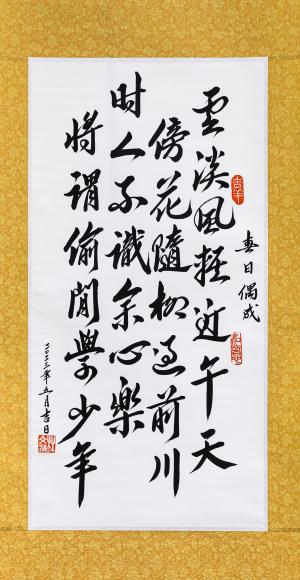 春日偶成
吉羊
雲淡風輕近午天
傍花隨柳過前川
時人不識余心樂
將謂偷閒學少年
二〇二三年五月吉日